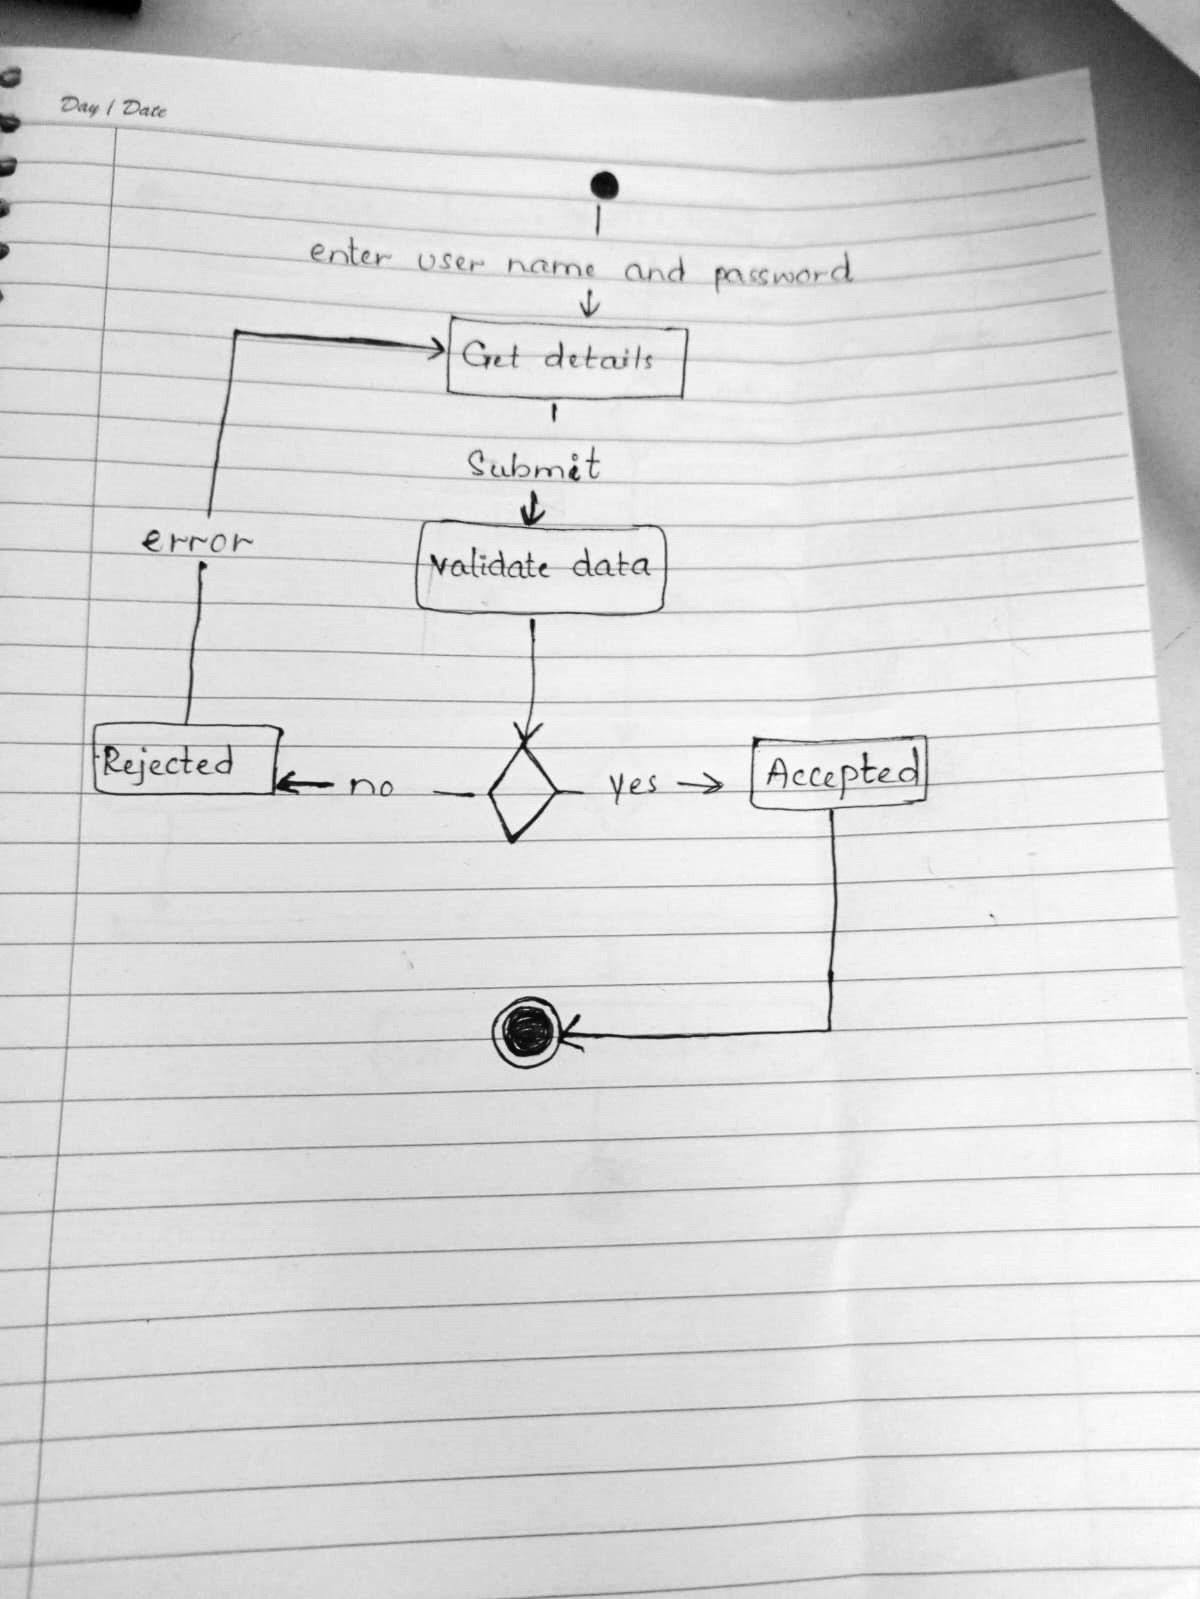 Day / Date
enter user name and password
Get details
Submit
error
validate data
Rejected
no
yes
Accepted